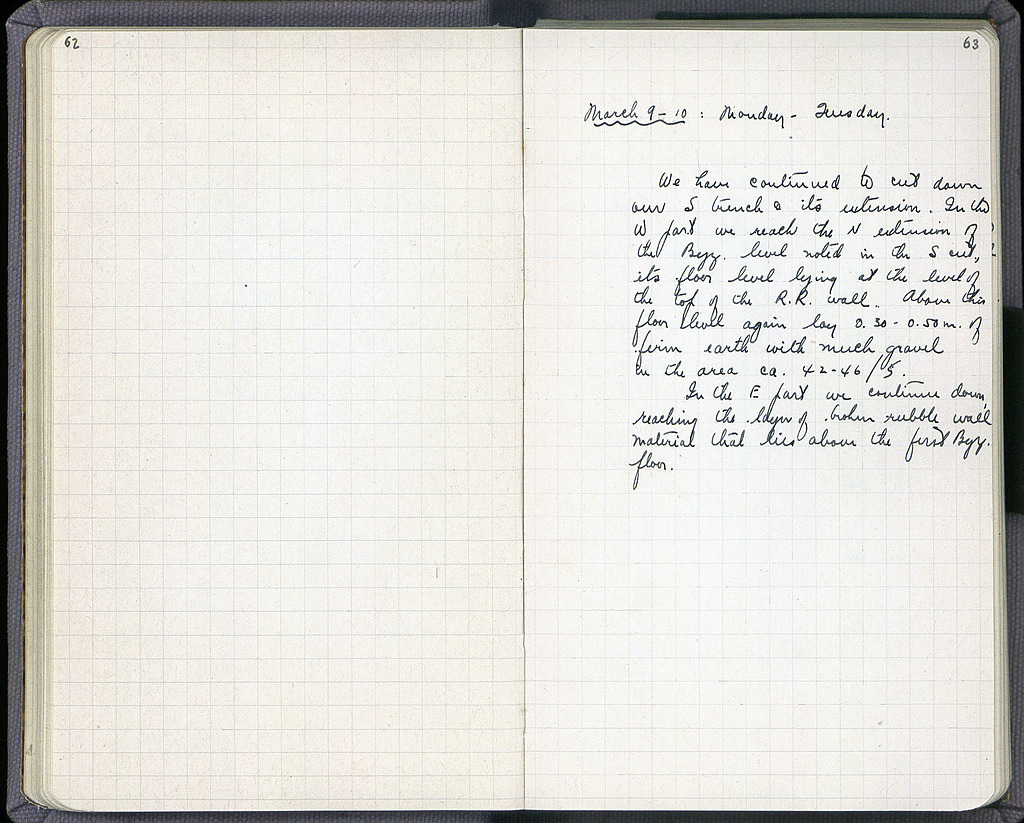 62
63
March 9-10 : Monday - Tuesday.
We have continued to cut down
our S trench & its extension. In the
W part we reach the N extension of
the Byz. level noted in the S cut,
its floor level lying at the level of
the top of the R.R. wall. Above this
floor level again lay 0.30-0.50m. of
firm earth with much gravel
in the area ca. 42-46/5.
In the E part we continue down,
reaching the layer of broken rubble wall
material that lies above the first Byz.
floor.